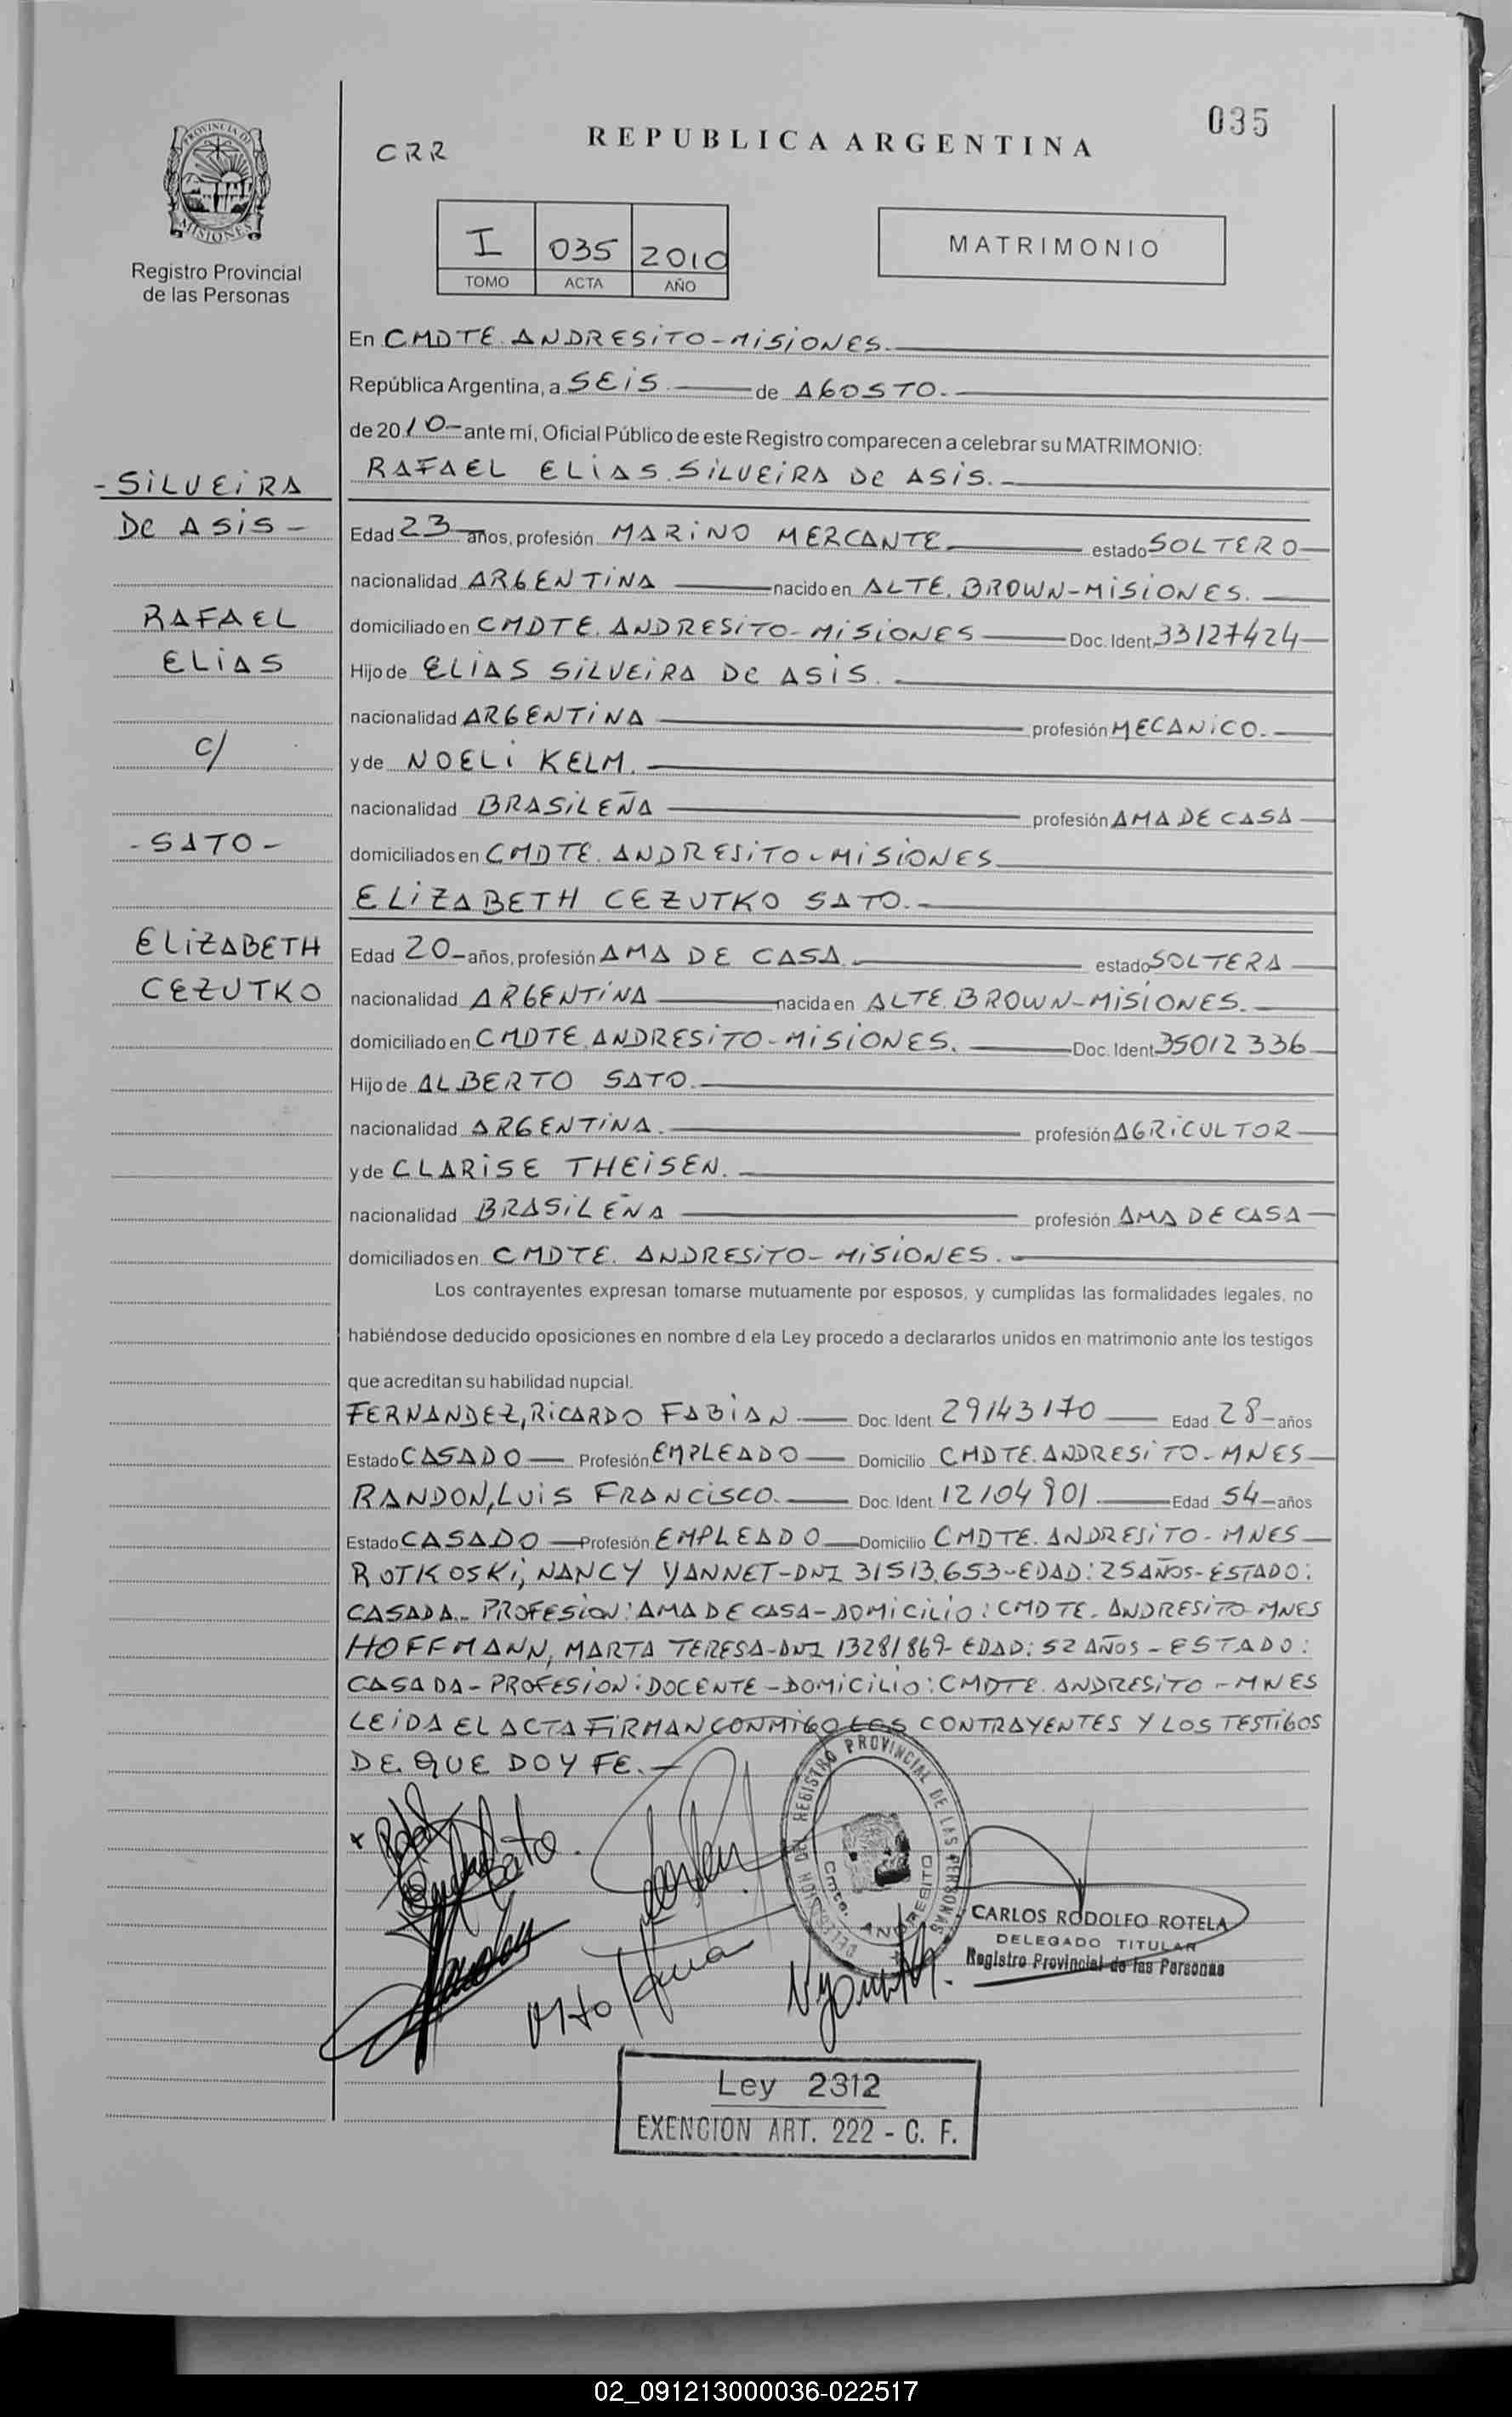 035
PROVINCIA DE
MISIONES
Registro Provincial
de las Personas
CRR
REPUBLICA ARGENTINA
I 035 2010
TOMO ACTA AÑO
MATRIMONIO
En CMDTE. ANDRESITO-MISIONES.
República Argentina, a SEIS. de AGOSTO.
de 2010- ante mí, Oficial Público de este Registro comparecen a celebrar su MATRIMONIO:
RAFAEL ELIAS SILVEIRA DE ASIS.
-SILVEIRA
DE ASIS-
Edad 23 años, profesión MARINO MERCANTE estado SOLTERO
nacionalidad ARGENTINA nacido en ALTE. BROWN-MISIONES.
RAFAEL
domiciliado en CMDTE. ANDRESITO-MISIONES Doc. Ident. 33127424
ELIAS
Hijo de ELIAS SILVEIRA DE ASIS.
nacionalidad ARGENTINA profesión MECANICO.
C/
y de NOELI KELM.
nacionalidad BRASILEÑA profesión AMA DE CASA
-SATO-
domiciliados en CMDTE. ANDRESITO-MISIONES
ELIZABETH CEZUTKO SATO.
ELIZABETH
Edad 20- años, profesión AMA DE CASA. estado SOLTERA
CEZUTKO
nacionalidad ARGENTINA nacida en ALTE. BROWN-MISIONES.
domiciliado en CMDTE. ANDRESITO-MISIONES. Doc. Ident. 35012336
Hijo de ALBERTO SATO.
nacionalidad ARGENTINA. profesión AGRICULTOR
y de CLARISE THEISEN.
nacionalidad BRASILEÑA profesión AMA DE CASA
domiciliados en CMDTE. ANDRESITO-MISIONES.
Los contrayentes expresan tomarse mutuamente por esposos, y cumplidas las formalidades legales, no
habiéndose deducido oposiciones en nombre d ela Ley procedo a declararlos unidos en matrimonio ante los testigos
que acreditan su habilidad nupcial.
FERNANDEZ, RICARDO FABIAN Doc. Ident. 29143170 Edad 28- años
Estado CASADO Profesión EMPLEADO Domicilio CMDTE. ANDRESITO-MNES
RANDON, LUIS FRANCISCO. Doc. Ident. 12104901 Edad 54- años
Estado CASADO Profesión EMPLEADO Domicilio CMDTE. ANDRESITO-MNES
ROTKOSKI, NANCY YANNET-DNI 31513.653-EDAD: 25 AÑOS-ESTADO:
CASADA.- PROFESION: AMA DE CASA-DOMICILIO: CMDTE. ANDRESITO-MNES
HOFFMANN, MARTA TERESA-DNI 13281869-EDAD: 52 AÑOS-ESTADO:
CASADA-PROFESION: DOCENTE-DOMICILIO: CMDTE. ANDRESITO-MNES
LEIDA EL ACTA FIRMAN CONMIGO LOS CONTRAYENTES Y LOS TESTIGOS
DE QUE DOY FE.-
REGISTRO PROVINCIAL DE LAS PERSONAS
Cmte. ANDRESITO
CARLOS RODOLFO ROTELA
DELEGADO TITULAR
Registro Provincial de las Personas
Ley 2312
EXENCION ART. 222 - C. F.
02_091213000036-022517